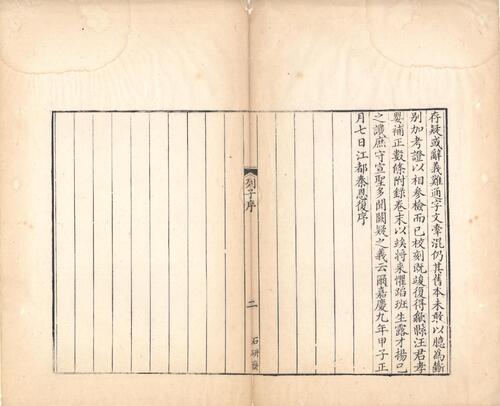 存疑或辭義難通字文牽混仍其舊本未敢以臆為斷
別加考證以相參檢而已校刻既竣復得歙縣汪君孝
嬰補正數條附錄卷末以竢將來懼蹈班生露才揚己
之譏庶守宣聖多聞闕疑之義云爾嘉慶九年甲子正
月七日江都秦恩復序
列子序
二
石研齋